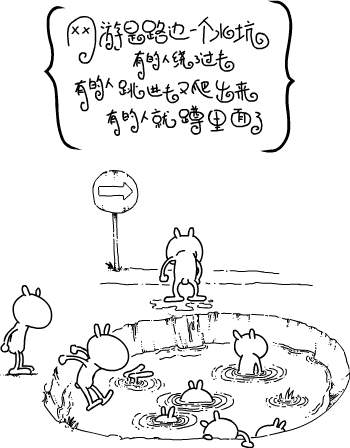 网游是路边一个水坑
有的人绕过去
有的人跳进去又爬出来
有的人就蹲里面了